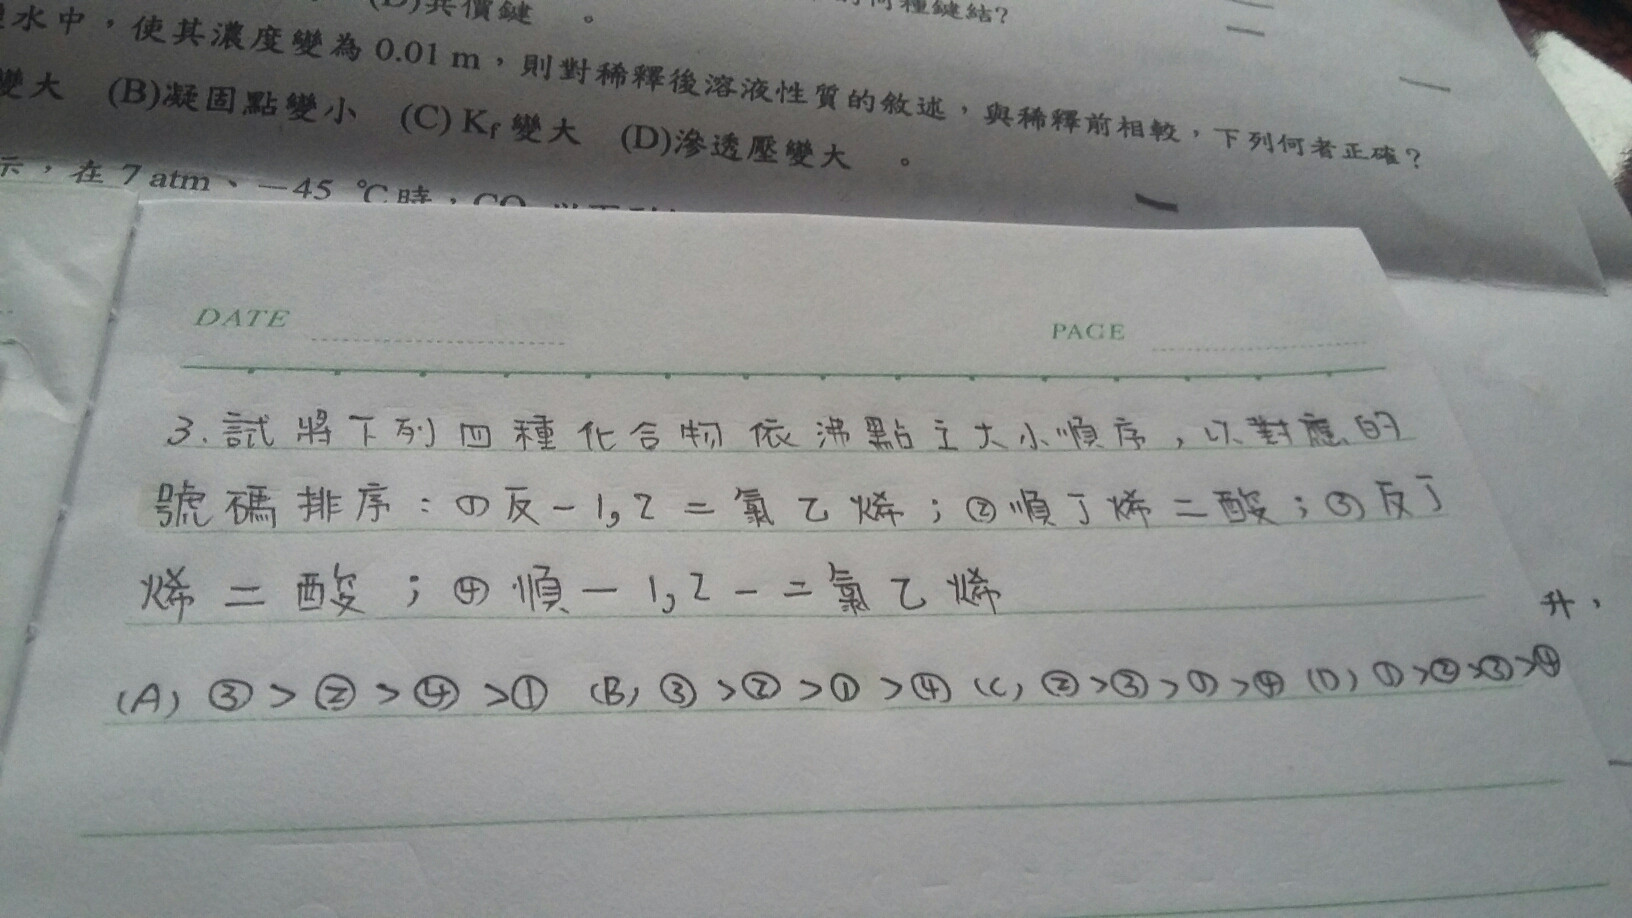 (D)共價鍵 。
種鍵結?
水中，使其濃度變為 0.01 m，則對稀釋後溶液性質的敘述，與稀釋前相較，下列何者正確？
變大 (B)凝固點變小 (C) Kf 變大 (D)滲透壓變大 。
示，在 7 atm、－45 ℃時，CO
DATE
PAGE
3.試將下列四種化合物依沸點之大小順序，以對應的
號碼排序：①反－1,2＝氯乙烯；②順丁烯二酸；③反丁
烯二酸；④順－1,2－二氯乙烯
升，
(A) ③>②>④>① (B) ③>②>①>④ (C) ②>③>①>④ (D) ①>②>③>④